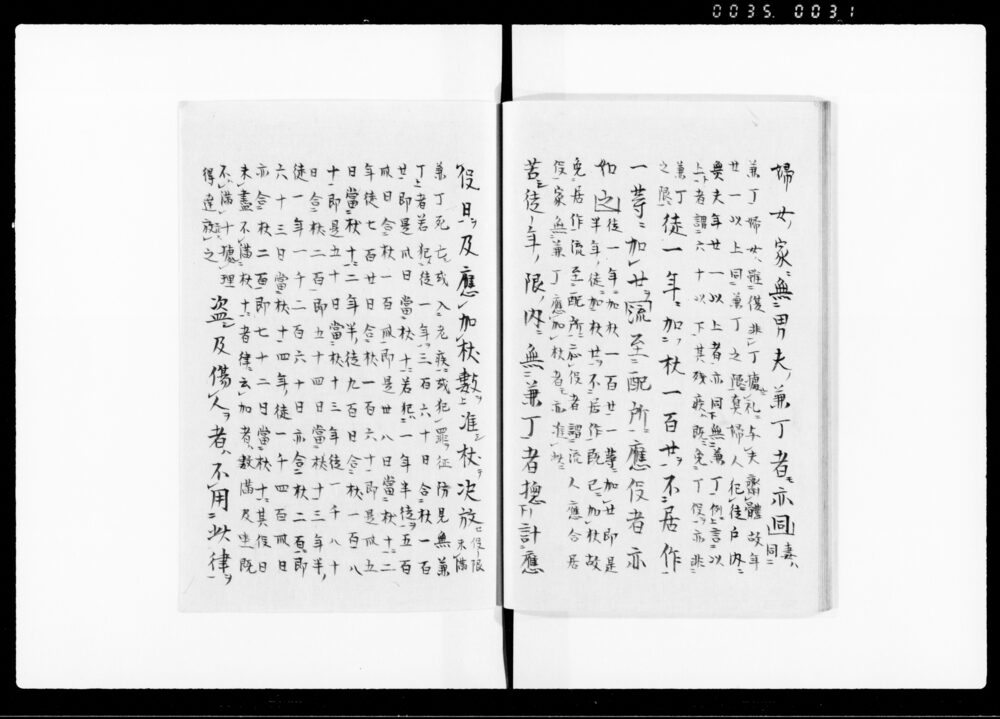 0035 0031
婦女家無男夫兼丁者亦同妻同
兼丁婦女雖復非丁據礼与夫齊體故年
廿一以上同兼丁之限其婦人犯徒戶内
無夫年廿一以上者亦同無兼丁例上言以
上者謂六十以下其残疾既免丁役亦非
兼丁之限徒一年加杖一百廿不居作
一等加廿流至配所應役者亦
如之徒一年加杖一百廿一等加廿即是
半年徒加杖廿不居作既已加杖故
免居作流至配所應役者謂流人應合居
役家無兼丁應加杖者亦准此
若徒年限内無兼丁者揔計應
役日及應加杖數准杖决放役限未滿
兼丁死亡或入老疾或犯罪征防見無兼
丁者若犯徒一年三百六十日合杖一百
廿即是卅日當杖十若犯一年半徒五百
卌日合杖一百卌即是卅八日當杖十二
年徒七百廿日合杖一百六十即是卌五
日當杖十二年半徒九百日合杖一百八
十即是五十日當杖十三年徒一千八十
日合杖二百即五十四日當杖十三年半
徒一年一千二百六十日亦合杖二百即
六十三日當杖十四年徒一千四百卌日
亦合杖二百即七十二日當杖十其役日
未盡不滿杖十者律云加者數滿乃坐既
不滿十據理得達放之盗及傷人者不用此律